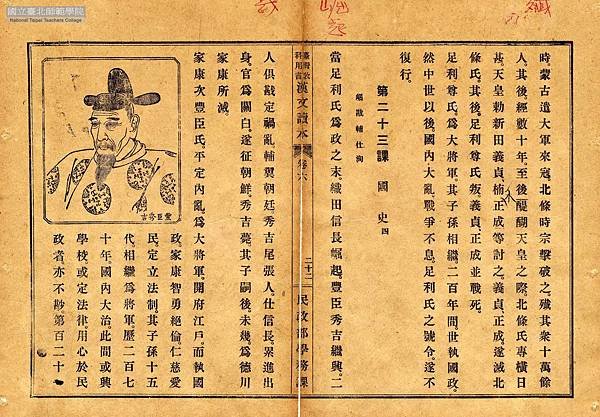 國立臺北師範學院
National Taipei Teachers College
時。蒙古遣大軍來寇。北條時宗擊破之。殱其衆十萬餘
人。其後經數十年至後醍醐天皇之際。北條氏專橫日
甚。天皇勅新田義貞楠正成等討之。義貞正成遂滅北
條氏。其後足利尊氏叛。義貞正成並戰死。
足利尊氏爲大將軍。其子孫相繼二百年間。世執國政。
然中世以後。國內大亂。戰爭不息。足利氏之號令。遂不
復行。
第二十三課 國史 四
戡輔仕
當足利氏爲政之末。織田信長起。豐臣秀吉繼興。二
漢文讀本 卷六 二十二 民政部學務課
人俱戡定禍亂。輔翼朝廷。秀吉尾張人。仕信長。累進出
身官爲關白。遂征朝鮮。秀吉薨。其子嗣後。未幾爲德川
家康所滅。
家康次豐臣氏。平定內亂。爲大將軍。開府江戶。而執國
政。家康智勇絕倫。仁慈愛
民。定立法制。其子孫十五
代。相繼爲將軍。歷二百七
十年。國內大治。此間或興
學校。或定法律。用心於民
政者。亦不尠。第百二十一
吉秀臣豐